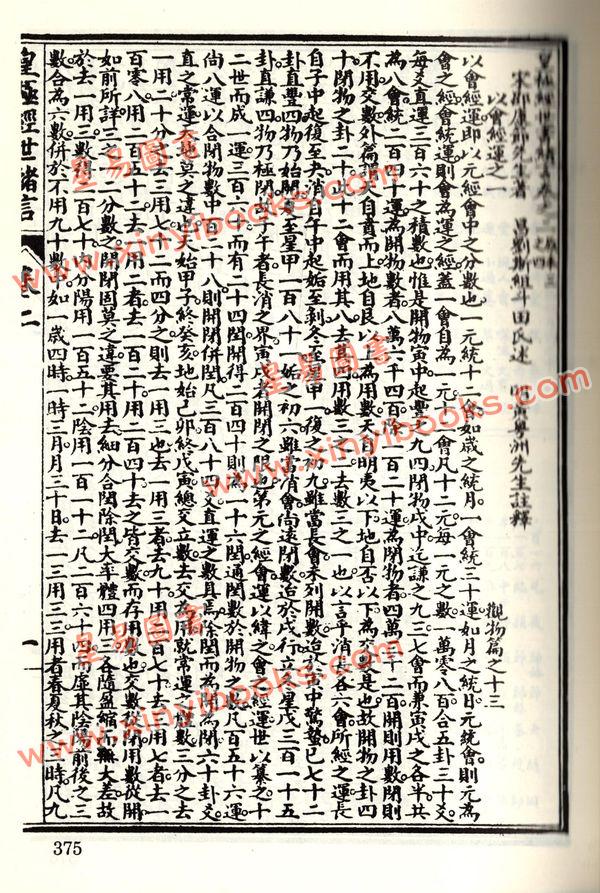 皇極經世書緒言卷之二
宋邵康節先生著　昌劉斯組斗田氏述　明黃粵洲先生註釋
以會經運之一　觀物篇之十三
以會經運即以元經會中之分數也一元統十二會如歲之統月一會統三十運如月之統日元統會則元為
會之經會統運則會為運之經蓋一會自為一元十二會凡十二元每一元之數一萬零八百合五卦三十爻
每爻直運三百六十之積數也惟是開物寅中起九四閉物戌中迄謙之九三七會而兼寅戌之各半共
為八會統二百四十運為開物數者八萬六千四百除一百二十運為閉物者四萬三千二百開則用數閉則
不用交數外篇謂天自賁而上地自艮以上為用數天自明夷以下地自否以下為交數是也故開物之卦四
十閉物之卦二十此十二會而用其八去其四用數三之二去數三之一也以言乎消長各六會所經之運長
自子中起復至夬消自午中起姤至剝冬至星甲一復之初九雖當長會未列開數迨於寅中驚蟄已七十二
卦直豐四物乃始開夏至星甲一百八十一姤之初六雖當消會尚遂開數迨於戌行立冬星戊三百一十五
卦直謙四物乃極閉子午者長消之界寅戌者開閉之限也第元之經會運以緯之會之經運世以纂之十
二世而成一運三百六十而有二十四閏開得二百四十則為一十六閏通閏數於開物之數凡百五十六運
尚八運以合閉物數中百二十八則開閉併閏凡三百八十四爻直運之數具焉除閏而為開為閉六十卦爻
直之常運天地莫之違也夫始甲子終癸亥地始己卯終戊寅總交立數去交為用就常運之恆數三分之去
一用二十分之去三用七十二而四分之則去一用三也去一用三者去九十用二百七十去三用七者去一
百零八用二百五十二去一用二者去一百二十用二百四十去之皆交數而存用數也交數從閉用數從開
如前所詳三之一二分數之開閉固莫之違要其用去細分合閏除閏大率體四用三各隨盈縮而無大差故
於去一用三數得二百七十內分陽用一百五十二陰用一百一十二凡二百六十四而虛其陰陽前後之三
數合為六數併於不用九十數中如一歲四時一時三月月三十日去一時用三時用者春夏秋之三時凡九
皇極經世緒言　卷二　一
皇易圖書
www.xinyibooks.com
皇易圖書
www.xinyibooks.com
皇易圖書
www.xinyibooks.com
375